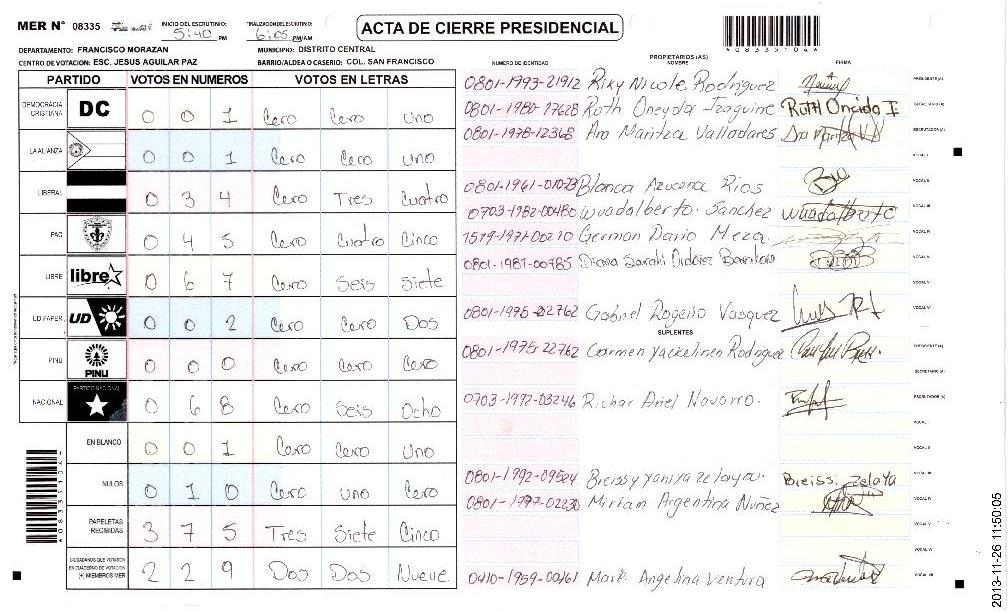 MER N° 08335
INICIO DEL ESCRUTINIO: 5:40 PM
FINALIZACION DEL ESCRUTINIO: 6:05 PM/AM
ACTA DE CIERRE PRESIDENCIAL
*083351044*
DEPARTAMENTO: FRANCISCO MORAZAN
MUNICIPIO: DISTRITO CENTRAL
CENTRO DE VOTACION: ESC. JESUS AGUILAR PAZ
BARRIO/ALDEA O CASERIO: COL. SAN FRANCISCO
PARTIDO VOTOS EN NUMEROS VOTOS EN LETRAS
DEMOCRACIA CRISTIANA DC 0 0 1 Cero Cero uno
LA ALIANZA 0 0 1 Cero Cero uno
LIBERAL 0 3 4 Cero Tres Cuatro
PAC 0 4 5 Cero Cuatro Cinco
LIBRE libre 0 6 7 Cero Seis Siete
UD FAPER UD 0 0 2 Cero Cero Dos
PINU PINU 0 0 0 Cero Cero Cero
NACIONAL PARTIDO NACIONAL 0 6 8 Cero Seis Ocho
EN BLANCO 0 0 1 Cero Cero uno
NULOS 0 1 0 Cero uno Cero
PAPELETAS RECIBIDAS 3 7 5 Tres Siete Cinco
CIUDADANOS QUE VOTARON EN CUADERNO DE VOTACION (+) MIEMBROS MER 2 2 9 Dos Dos Nueve
NUMERO DE IDENTIDAD
PROPIETARIOS (AS)
NOMBRE
FIRMA
0801-1993-21912 Riky Nicole Rodriguez PRESIDENTE (A)
0801-1980-17628 Ruth Oneyda Izaguirre Ruth Oneida I SECRETARIO (A)
0801-1978-12368 Ana Maritza Valladares ESCRUTADOR (A)
VOCAL I
0801-1961-01023 Blanca Azucena Rios VOCAL II
0703-1982-00480 Wuadalberto Sanchez Wuadalberto VOCAL III
1519-1971-00210 German Dario Meza VOCAL IV
0801-1987-00785 Diana Sarahi Ordoñez VOCAL V
VOCAL VI
0801-1995-02762 Gabriel Rogelio Vasquez
SUPLENTES
0801-1975-22762 Carmen Yackelinen Rodrigue PRESIDENTE (A)
SECRETARIO (A)
0703-1992-03246 Richar Ariel Navarro. ESCRUTADOR (A)
VOCAL I
VOCAL II
0801-1992-09524 Breissy yaniya zelaya. Breissi zelaya VOCAL III
0801-1997-02230 Mirian Argentina Nuñez VOCAL IV
VOCAL V
VOCAL VI
0410-1959-00161 Angelina Ventura VOCAL VII
*083351044*
2013-11-26 11:50:05